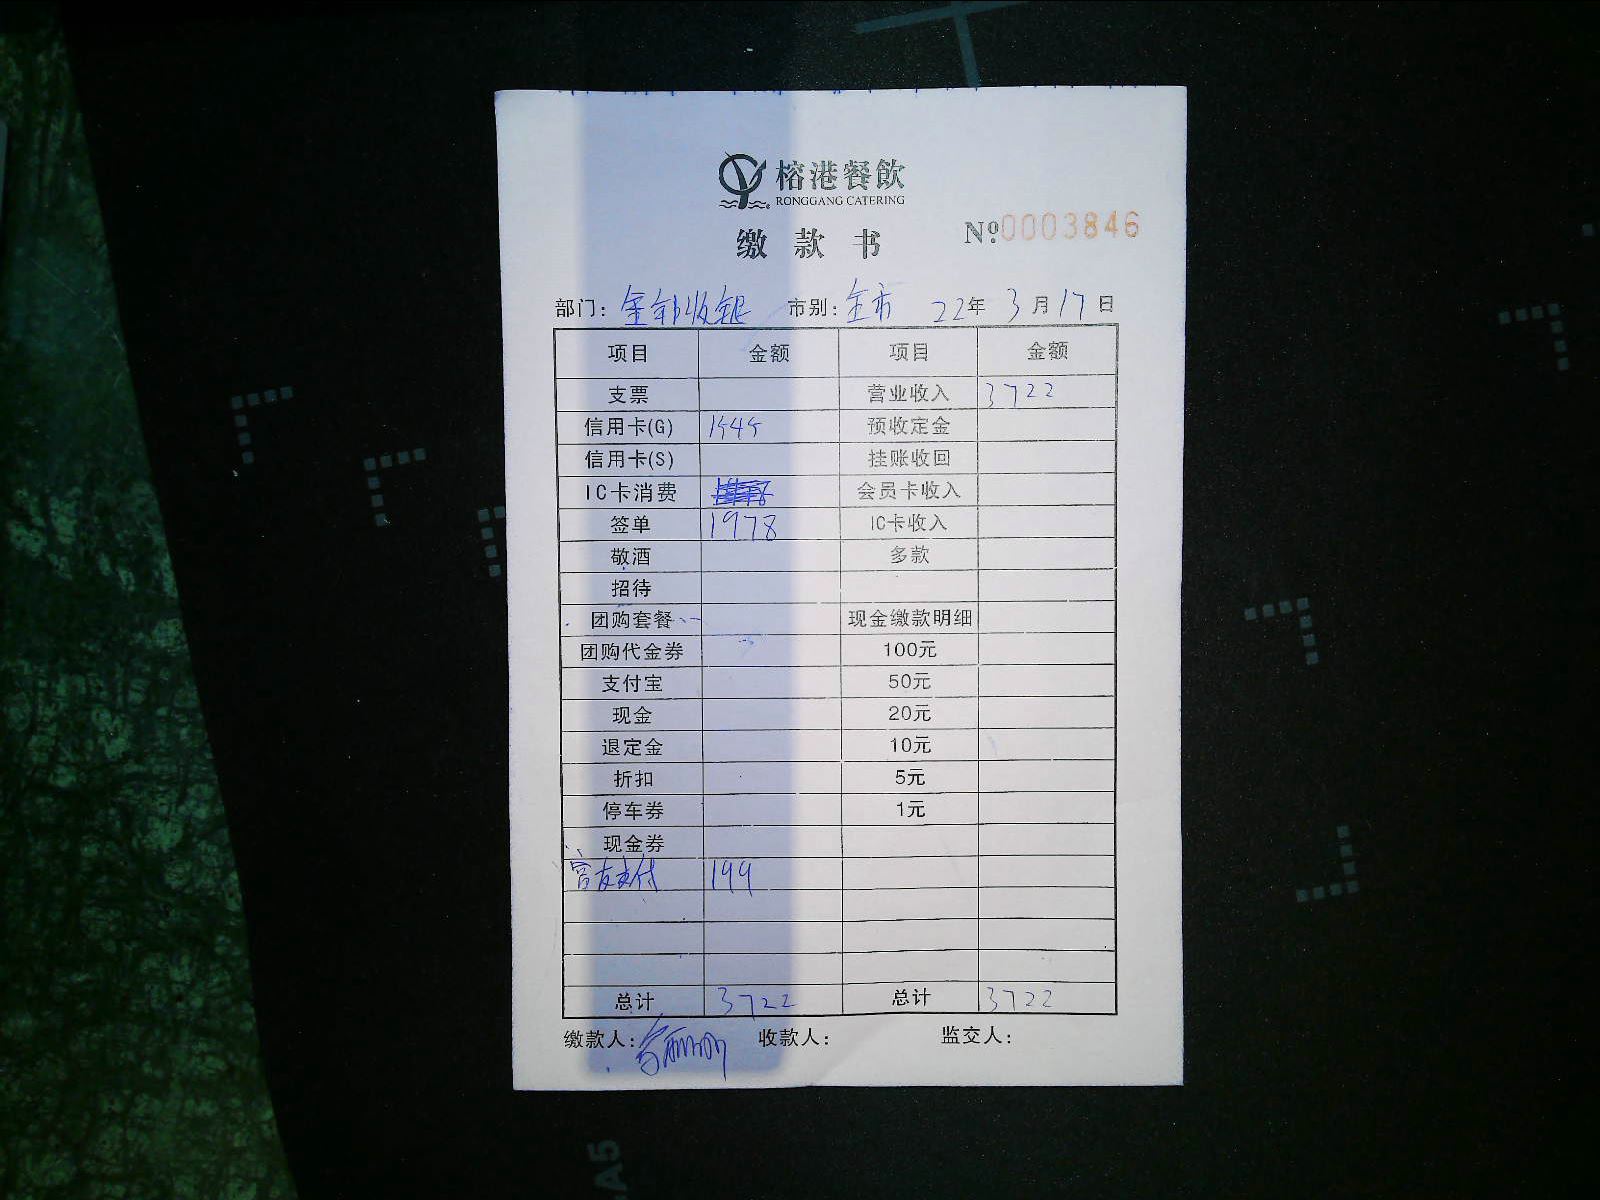 榕港餐飲
RONGGANG CATERING
缴款书 Nº.0003846
部门: 收银 市别: 全市 22年 3月17日
项目 金额 项目 金额
支票 营业收入 3722
信用卡(G) 1545 预收定金
信用卡(S) 挂账收回
IC卡消费 会员卡收入
签单 1978 IC卡收入
敬酒 多款
招待
团购套餐 现金缴款明细
团购代金券 100元
支付宝 50元
现金 20元
退定金 10元
折扣 5元
停车券 1元
现金券
富友支付 199
总计 3722 总计 3722
缴款人: 收款人: 监交人:
A5